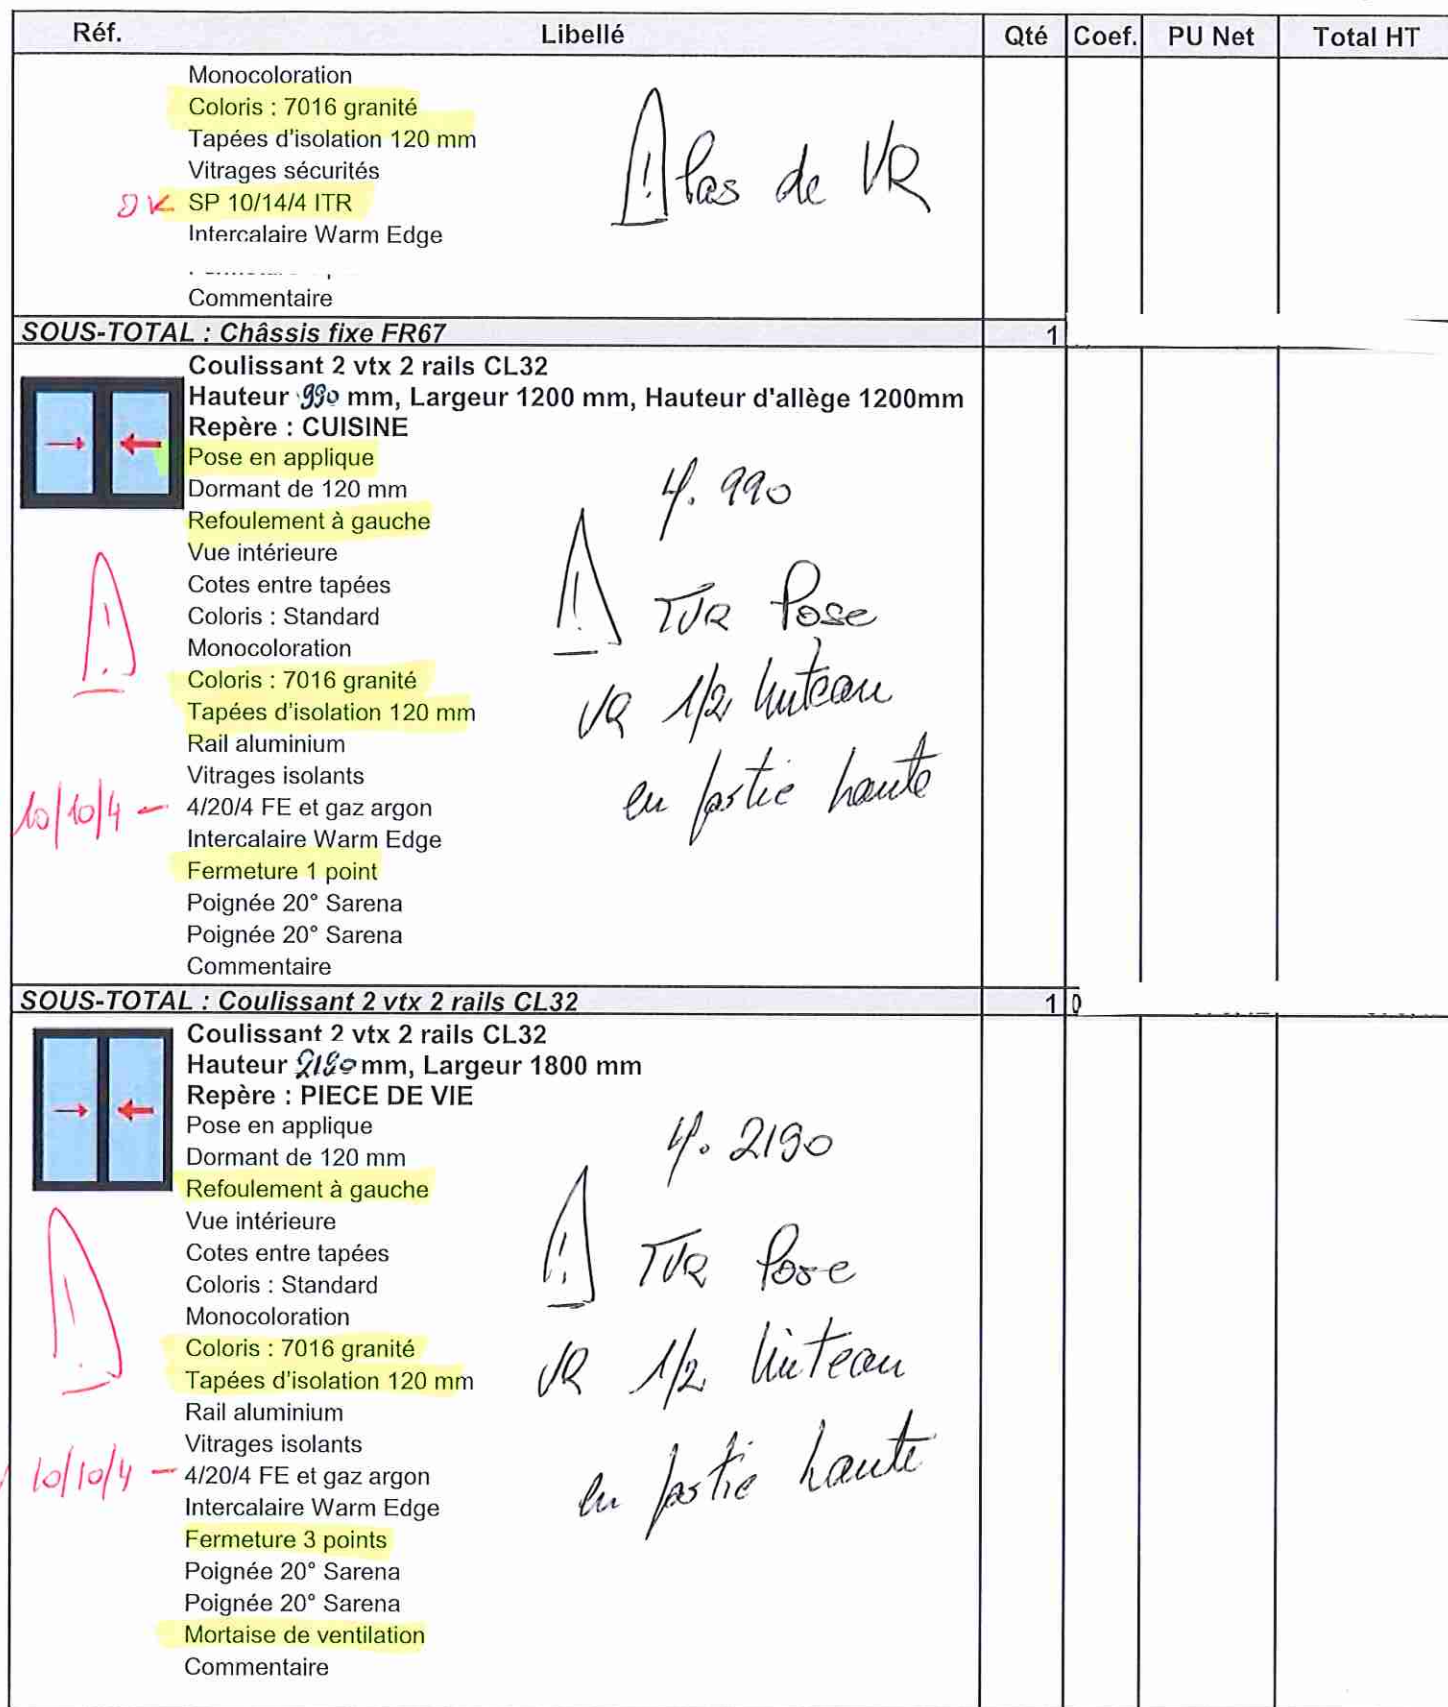 Réf. Libellé Qté Coef. PU Net Total HT
Monocoloration
Coloris : 7016 granité
Tapées d'isolation 120 mm
Vitrages sécurités
OK SP 10/14/4 ITR
Intercalaire Warm Edge
! Pas de VR
Commentaire
SOUS-TOTAL : Châssis fixe FR67 1
Coulissant 2 vtx 2 rails CL32
Hauteur 990 mm, Largeur 1200 mm, Hauteur d'allège 1200mm
Repère : CUISINE
Pose en applique
Dormant de 120 mm
Refoulement à gauche
Vue intérieure
Cotes entre tapées
Coloris : Standard
Monocoloration
Coloris : 7016 granité
Tapées d'isolation 120 mm
Rail aluminium
Vitrages isolants
10/10/4 – 4/20/4 FE et gaz argon
Intercalaire Warm Edge
Fermeture 1 point
Poignée 20° Sarena
Poignée 20° Sarena
Commentaire
!
H. 990
! TVR Pose
VR 1/2 linteau
en partie haute
SOUS-TOTAL : Coulissant 2 vtx 2 rails CL32 1 0
Coulissant 2 vtx 2 rails CL32
Hauteur 2190 mm, Largeur 1800 mm
Repère : PIECE DE VIE
Pose en applique
Dormant de 120 mm
Refoulement à gauche
Vue intérieure
Cotes entre tapées
Coloris : Standard
Monocoloration
Coloris : 7016 granité
Tapées d'isolation 120 mm
Rail aluminium
Vitrages isolants
10/10/4 – 4/20/4 FE et gaz argon
Intercalaire Warm Edge
Fermeture 3 points
Poignée 20° Sarena
Poignée 20° Sarena
Mortaise de ventilation
Commentaire
!
H. 2190
! TVR Pose
VR 1/2 linteau
en partie haute